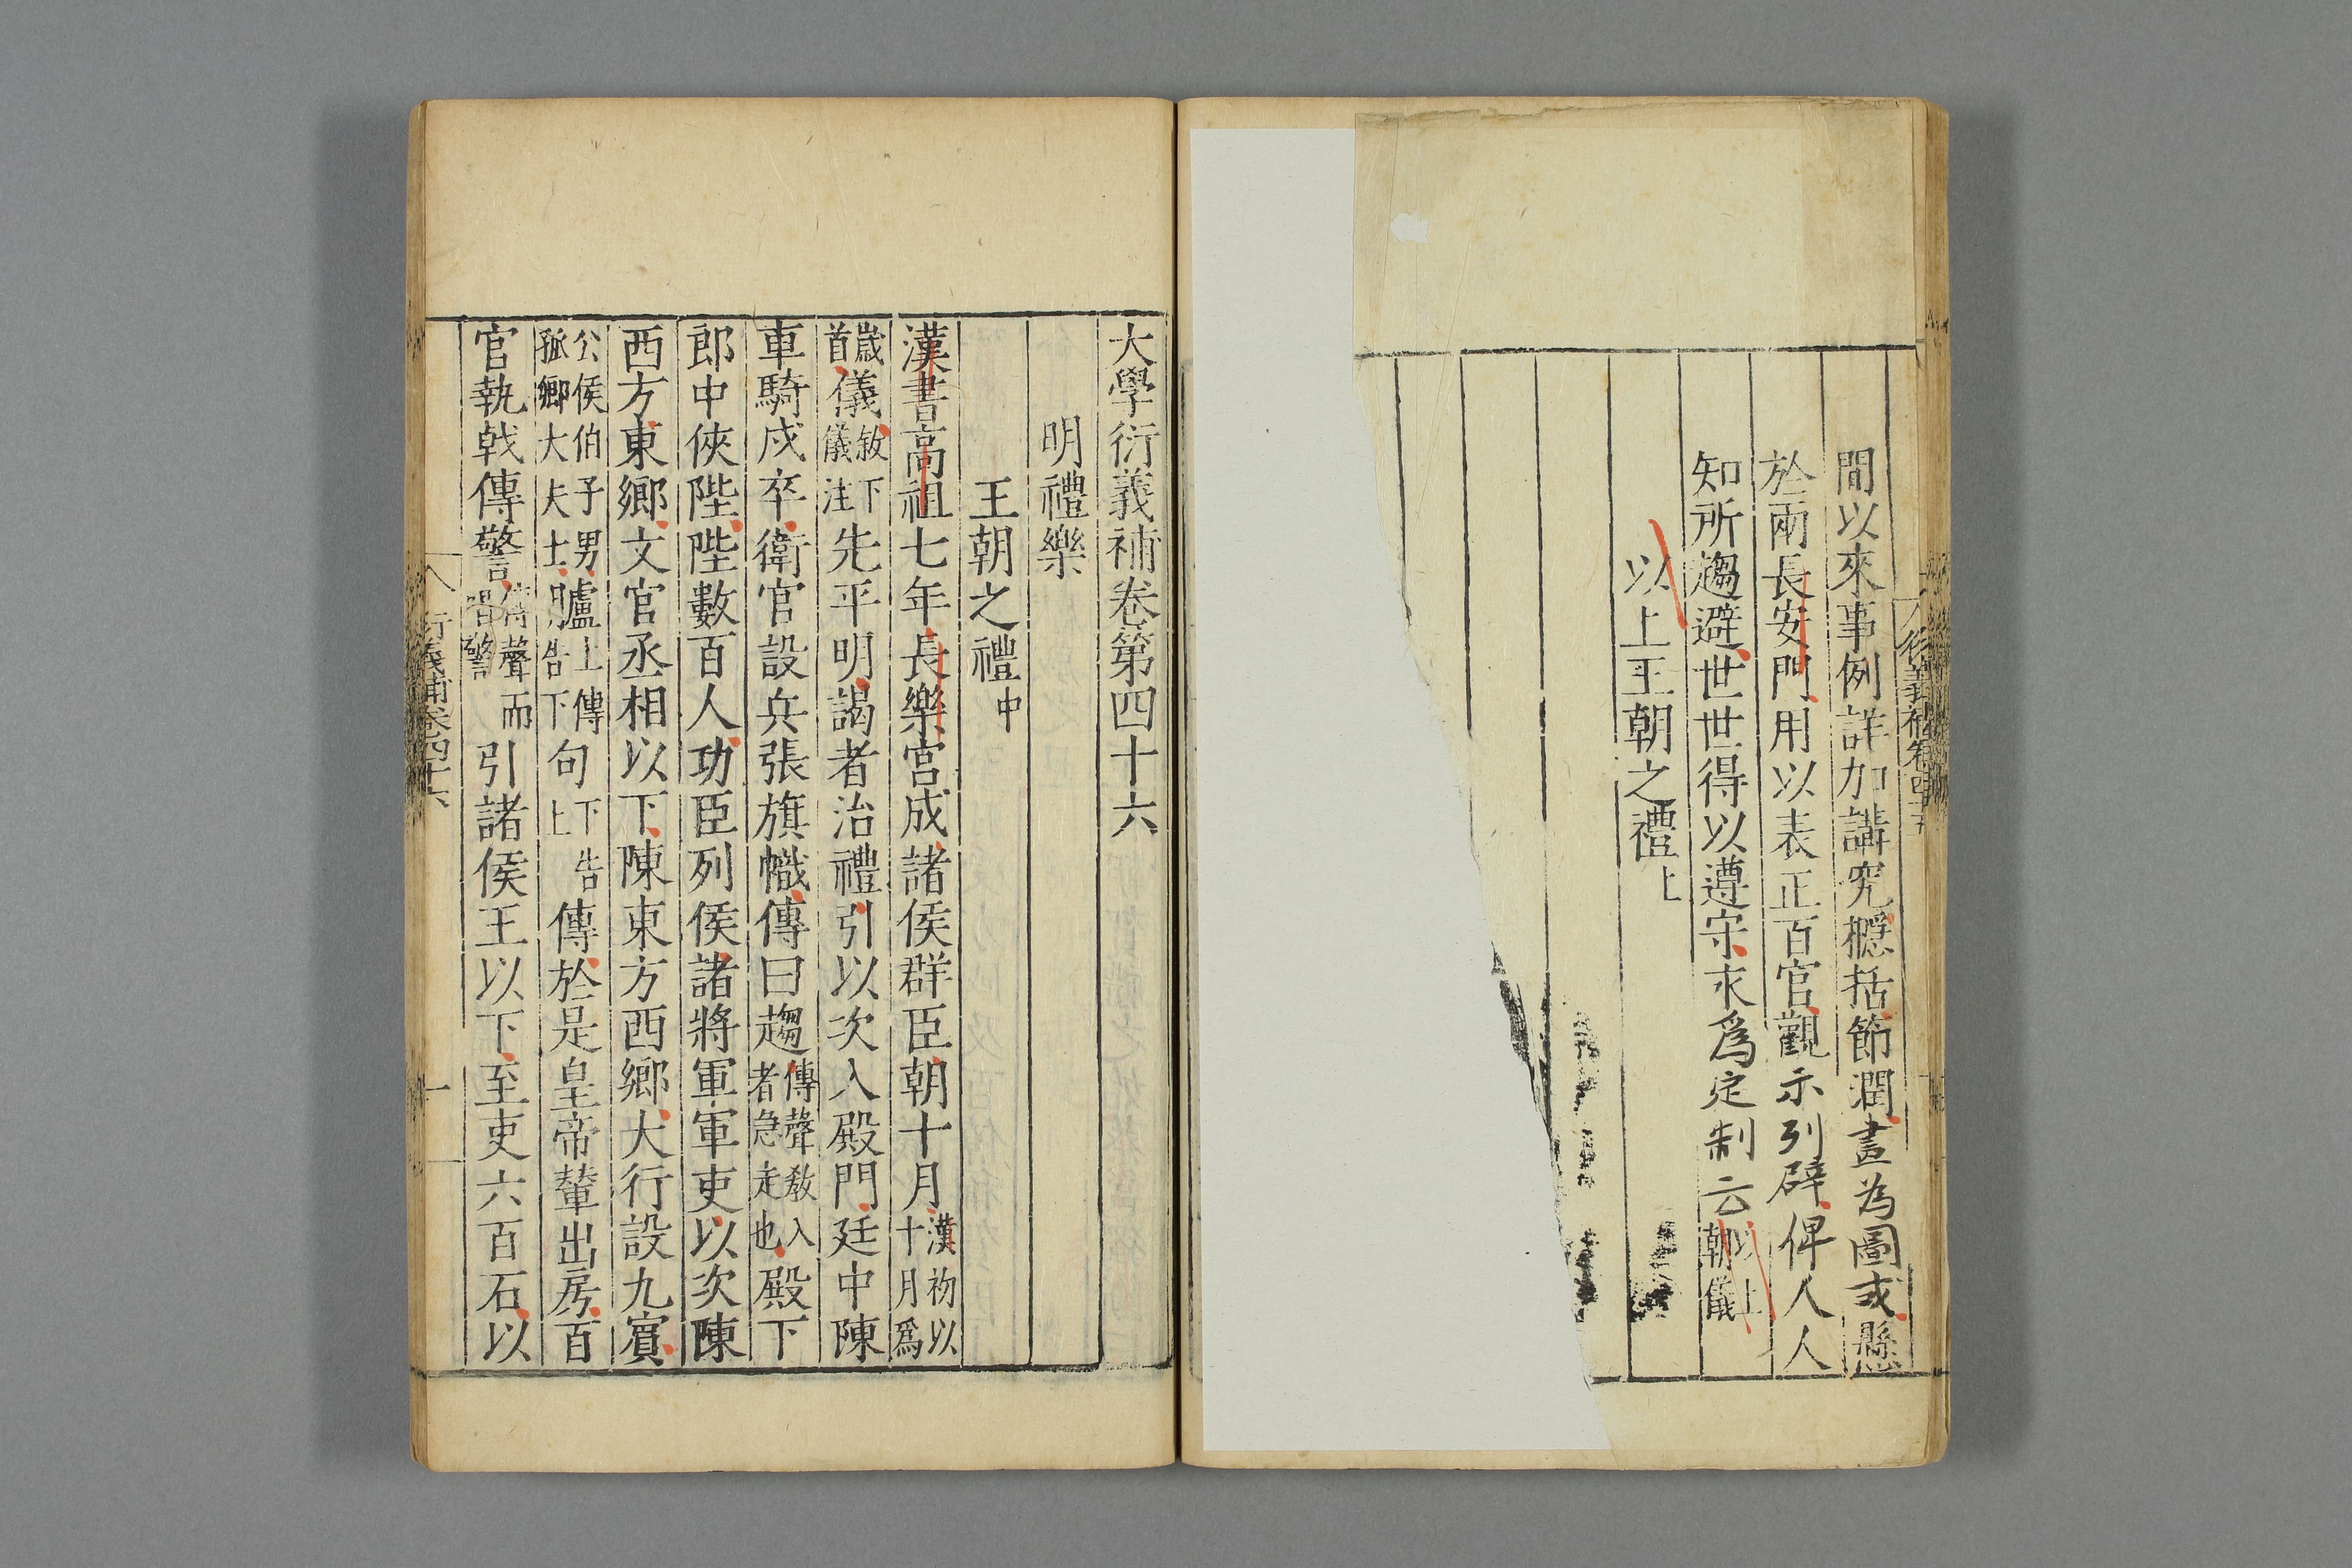 間以來事例詳加講究檃括節潤畫為圖或懸
於兩長安門用以表正百官觀示列辟俾人人
知所趨避世世得以遵守永爲定制云以上朝儀
以上王朝之禮上
大學衍義補卷第四十六
明禮樂
王朝之禮中
漢書高祖七年長樂宮成諸侯群臣朝十月漢初以十月爲
歲首儀敘下儀注先平明謁者治禮引以次入殿門廷中陳
車騎戍卒衛官設兵張旗幟傳曰趨傳聲教入者急走也殿下
郎中俠陛陛數百人功臣列侯諸將軍軍吏以次陳
西方東鄉文官丞相以下陳東方西鄉大行設九賓
公侯伯子男孤卿大夫士臚上傳告下句下告上傳於是皇帝輦出房百
官執戟傳警傳聲而唱警引諸侯王以下至吏六百石以
衍義補卷四十六
一